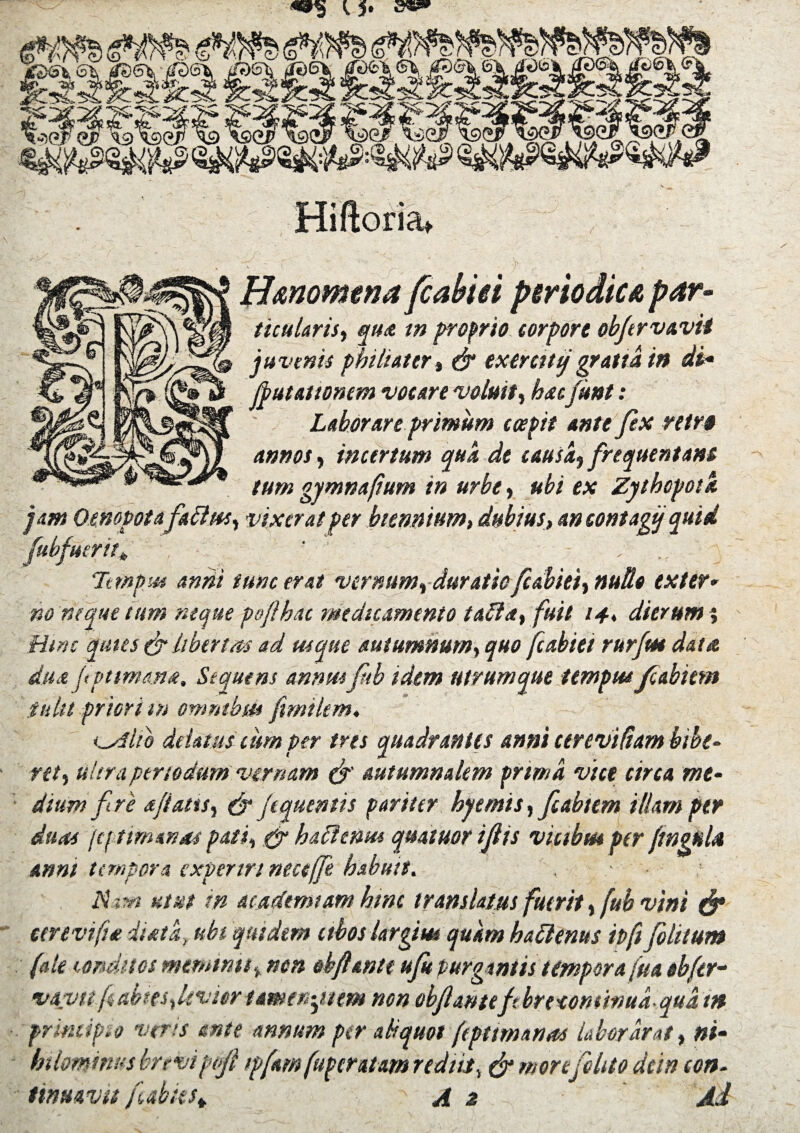 (3.
Hiſtoria.
PHænomena ſcabiei periodicæ par-
ticularis, quæ in proprio corpore obſervavit
juvenis philiater, & exercitij gratiâ in di-
ſputationem vocare voluit, hæc ſunt:
Laborare primùm cœpit ante ſex retrò
annos, incertum quâ de causâ, frequentans
tum gymnaſium in urbe, ubi ex Zythopotâ
jam Oenopota factus, vixerat per biennium, dubius, an contagij quid
ſubfuerit.
Tempus anni tunc erat vernum, duratio ſcabiei, nullo exter-
no neque tum neque poſthac medicamento tacta, fuit 14. dierum;
Hinc quies & libertas ad usque autumnum, quo ſcabiei rurſus datæ
duæ ſeptimanæ. Sequens annus ſub idem utrumque tempus ſcabiem
tulit priori in omnibus ſimilem.
Aliò delatus cùm per tres quadrantes anni cereviſiam bibe-
ret, ultra periodum vernam & autumnalem primâ vice circa me-
dium ferè æſtatis, & ſequentis pariter hyemis, ſcabiem illam per
duas ſeptimanas pati, & hactenus quatuor iſtis vicibus per ſingula
anni tempora experiri neceſſe habuit.
Nam utut in academiam hinc translatus fuerit, ſub vini &
cereviſiæ diætâ, ubi quidem cibos largius quàm hactenus ipſi ſolitum
ſale conditos meminit, non obſtante uſu purgantis tempora ſua obſer-
vavit ſcabies, levior tamen; item non obſtante febre continuâ quâ in
principio veris ante annum per aliquot ſeptimanas laborârat, ni-
hilominus brevi pòſt ipſam ſuperatam rediit, & more ſolito dein con-
tinuavit ſcabies.
A 2 Ad